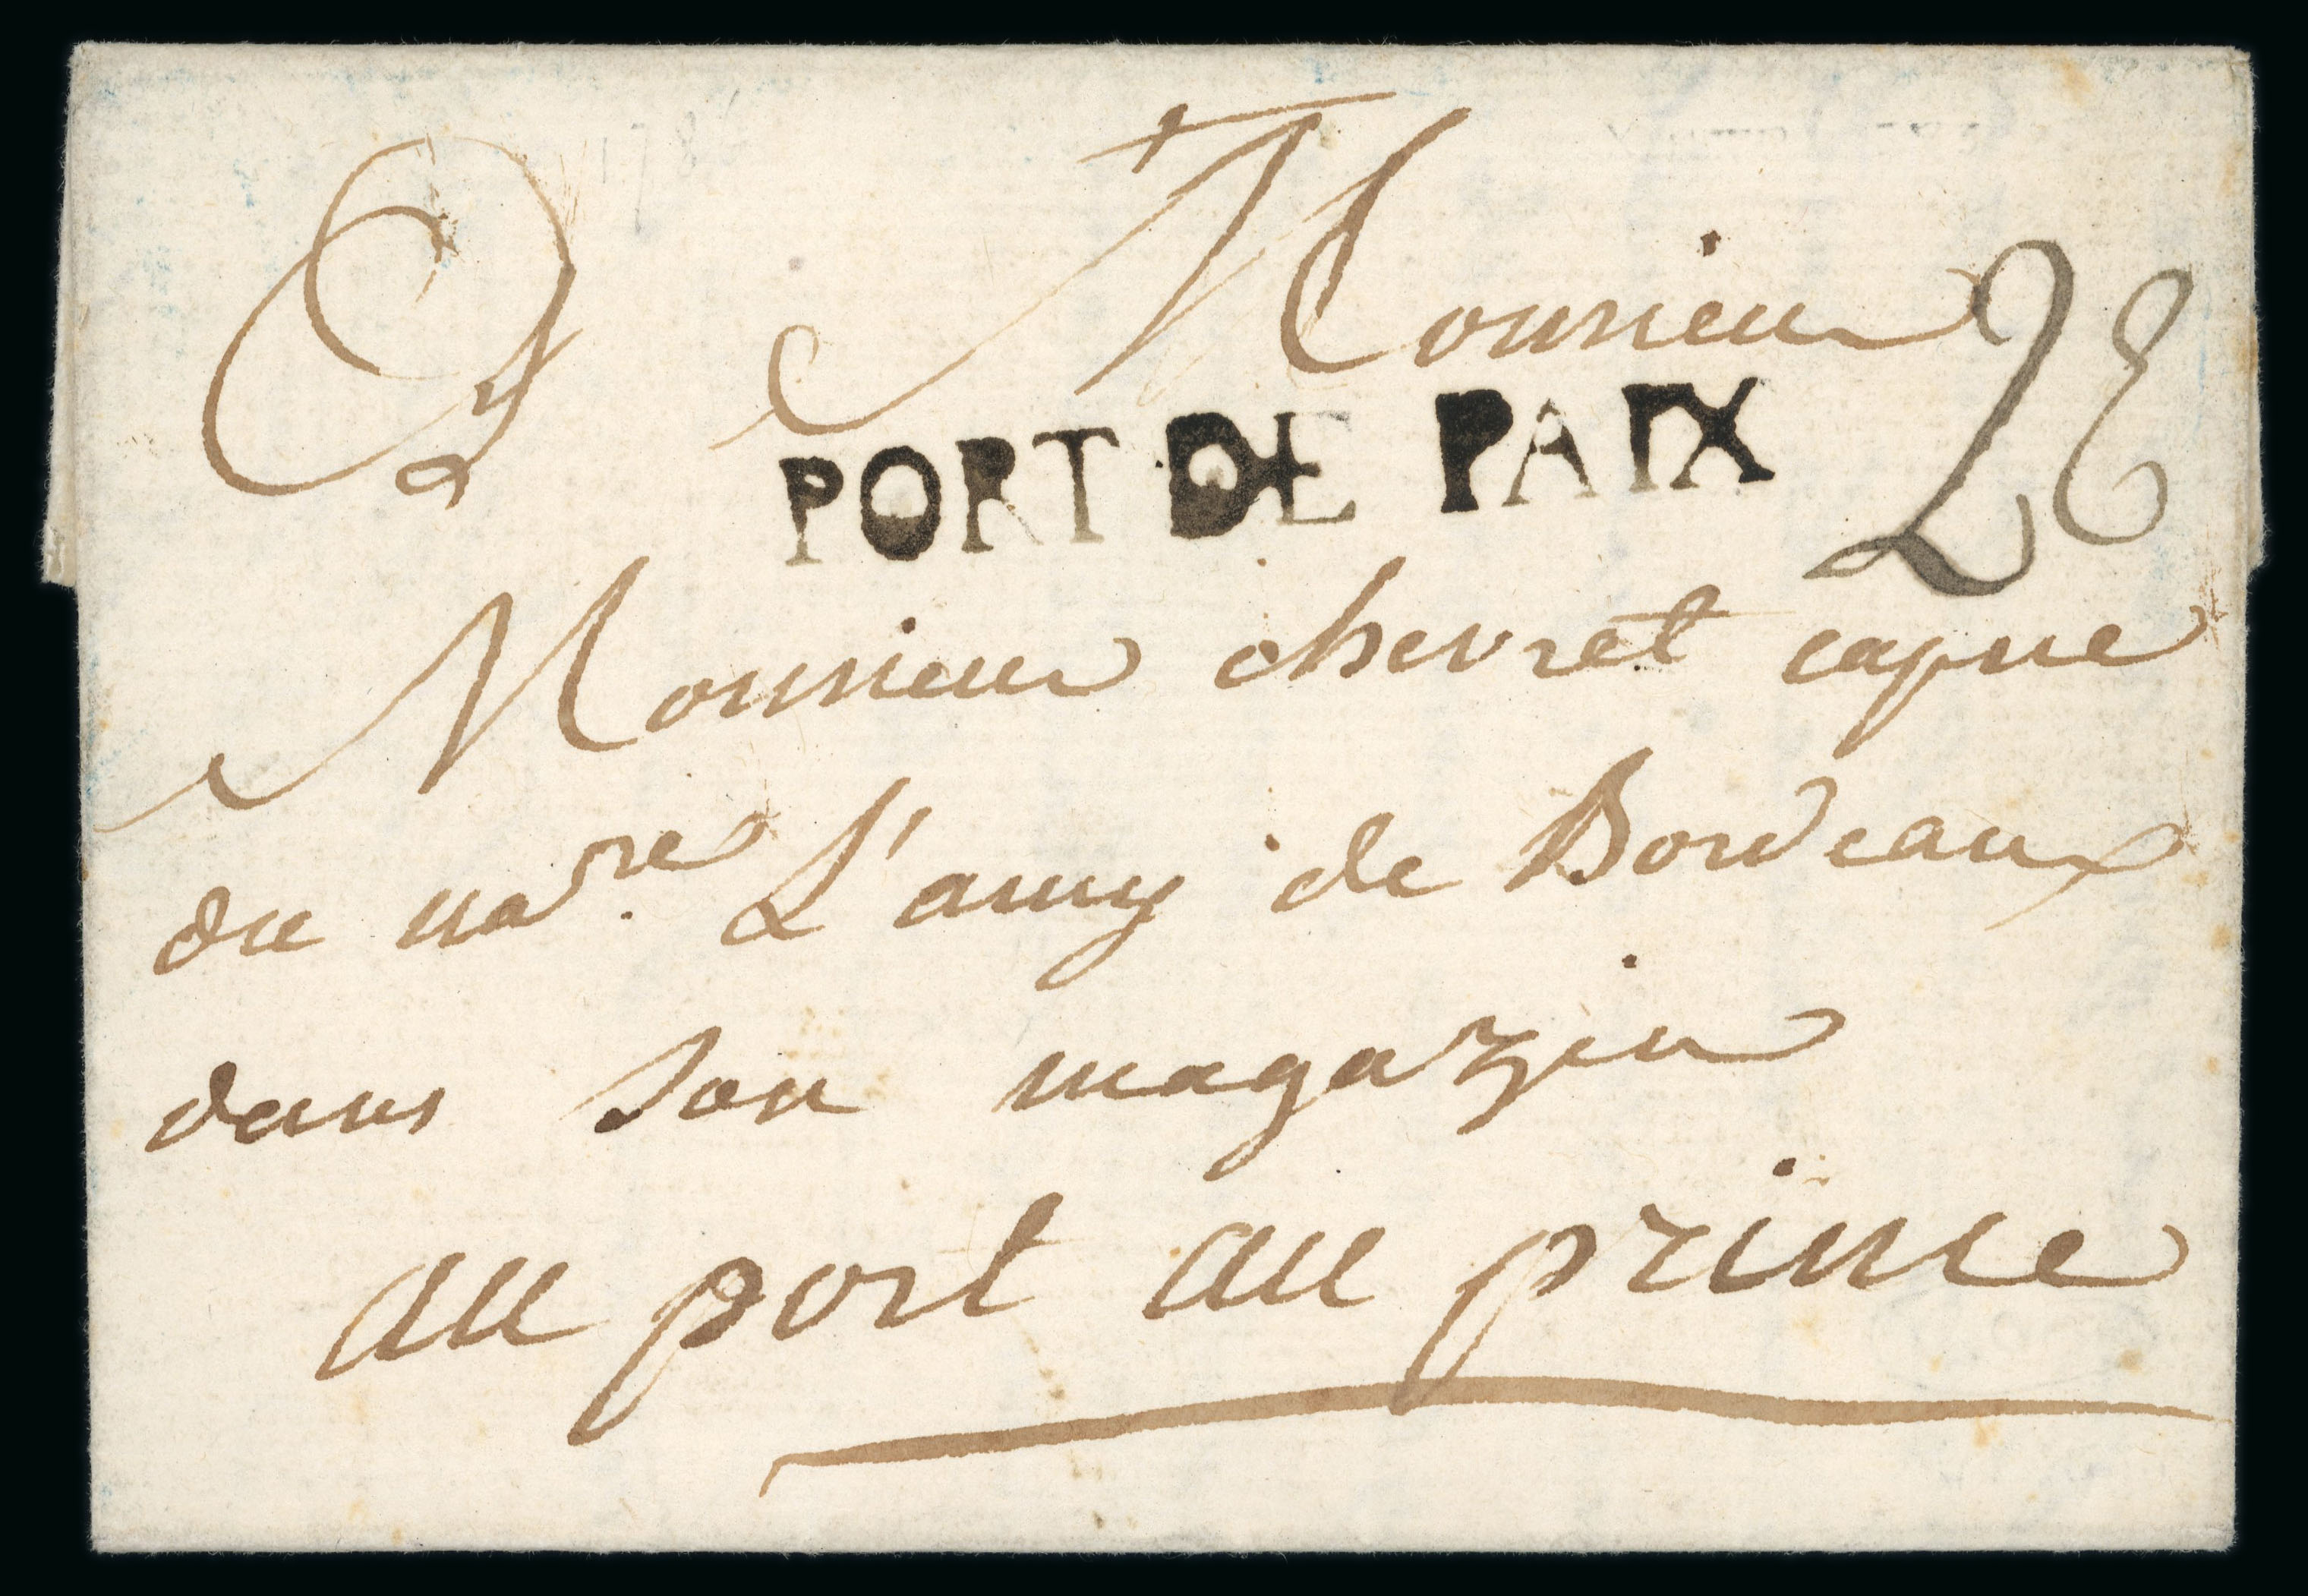 Monsieur
PORT DE PAIX
Monsieur chevret capne
du na.re L'amy de Bordeaux
dans son magazin
au port au prince